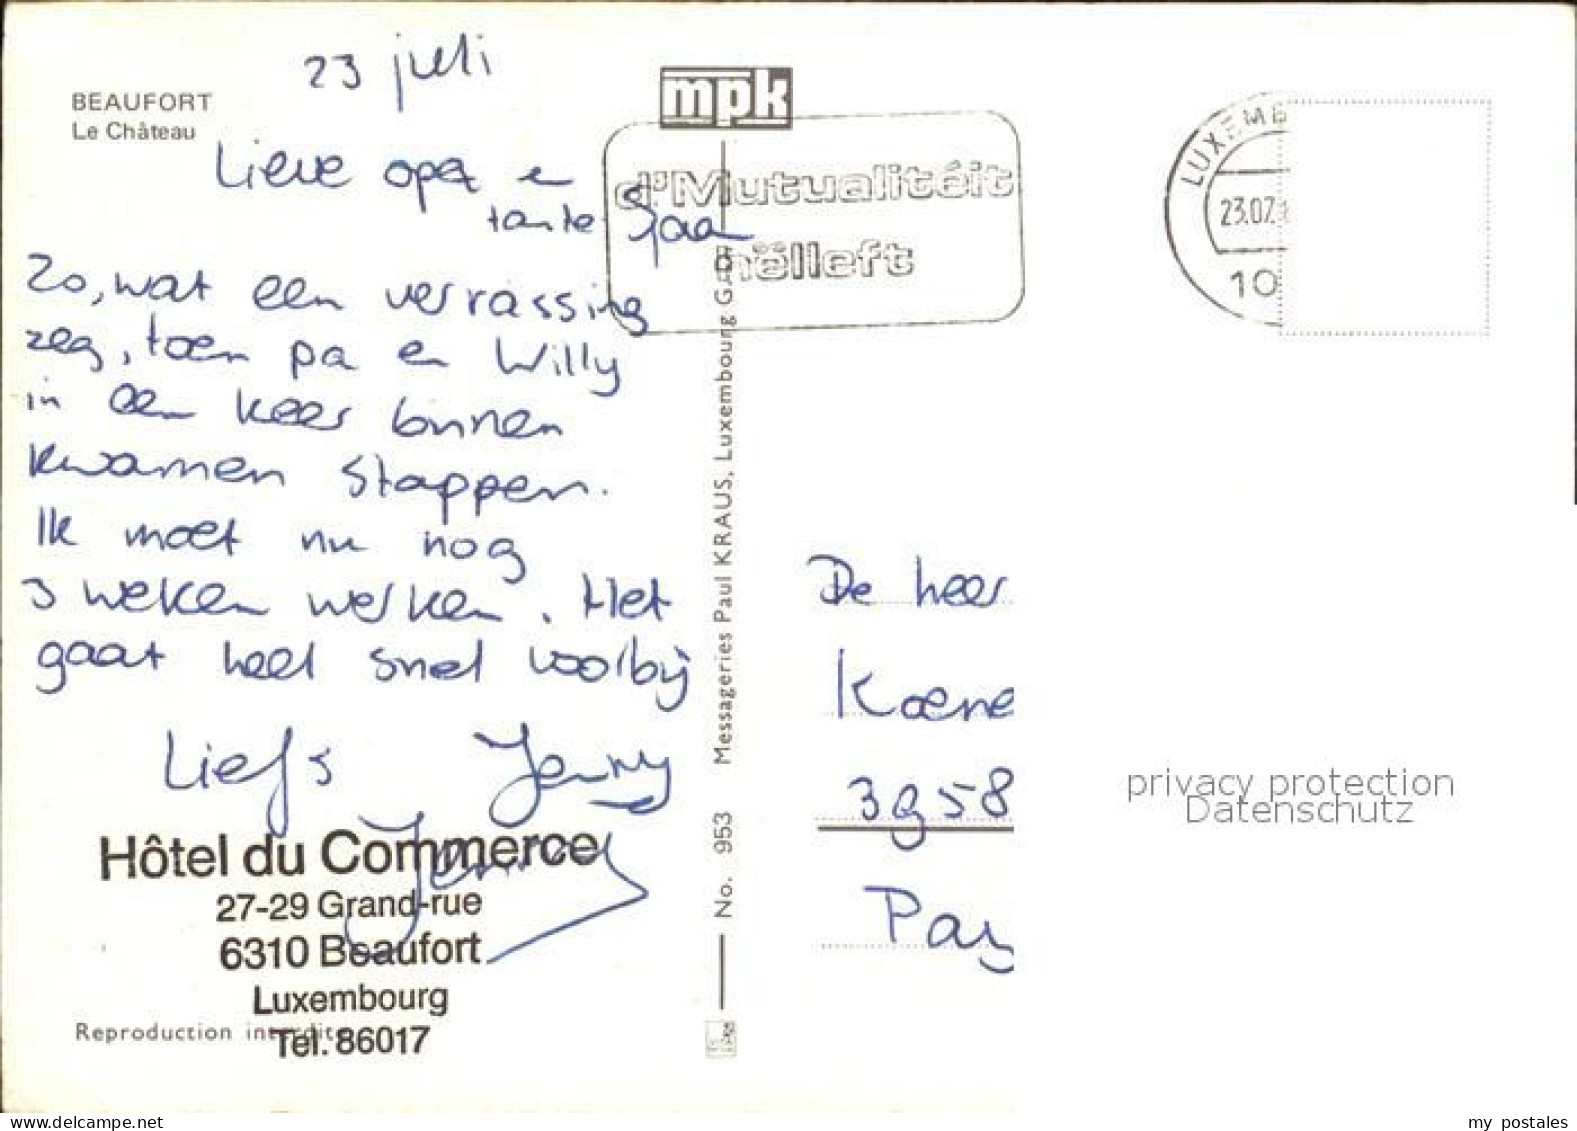 23 juli
BEAUFORT
Le Château
Lieve opa en
tante Sjaan
Zo, wat een verrassing
zeg, toen pa en Willy
in een keer binnen
kwamen stappen.
Ik moet nu nog
3 weken werken. Het
gaat heel snel voorbij
Liefs Jenny
Hôtel du Commerce
27-29 Grand-rue
6310 Beaufort
Luxembourg
Tel. 86017
Reproduction interdite
mpk
d'Mutualitéit
hëlleft
No. 953 Messageries Paul KRAUS, Luxembourg GARE
LUXEMB
23.07.
10
De heer
Koene
3958
Pay
privacy protection
Datenschutz
www.delcampe.net
my postales